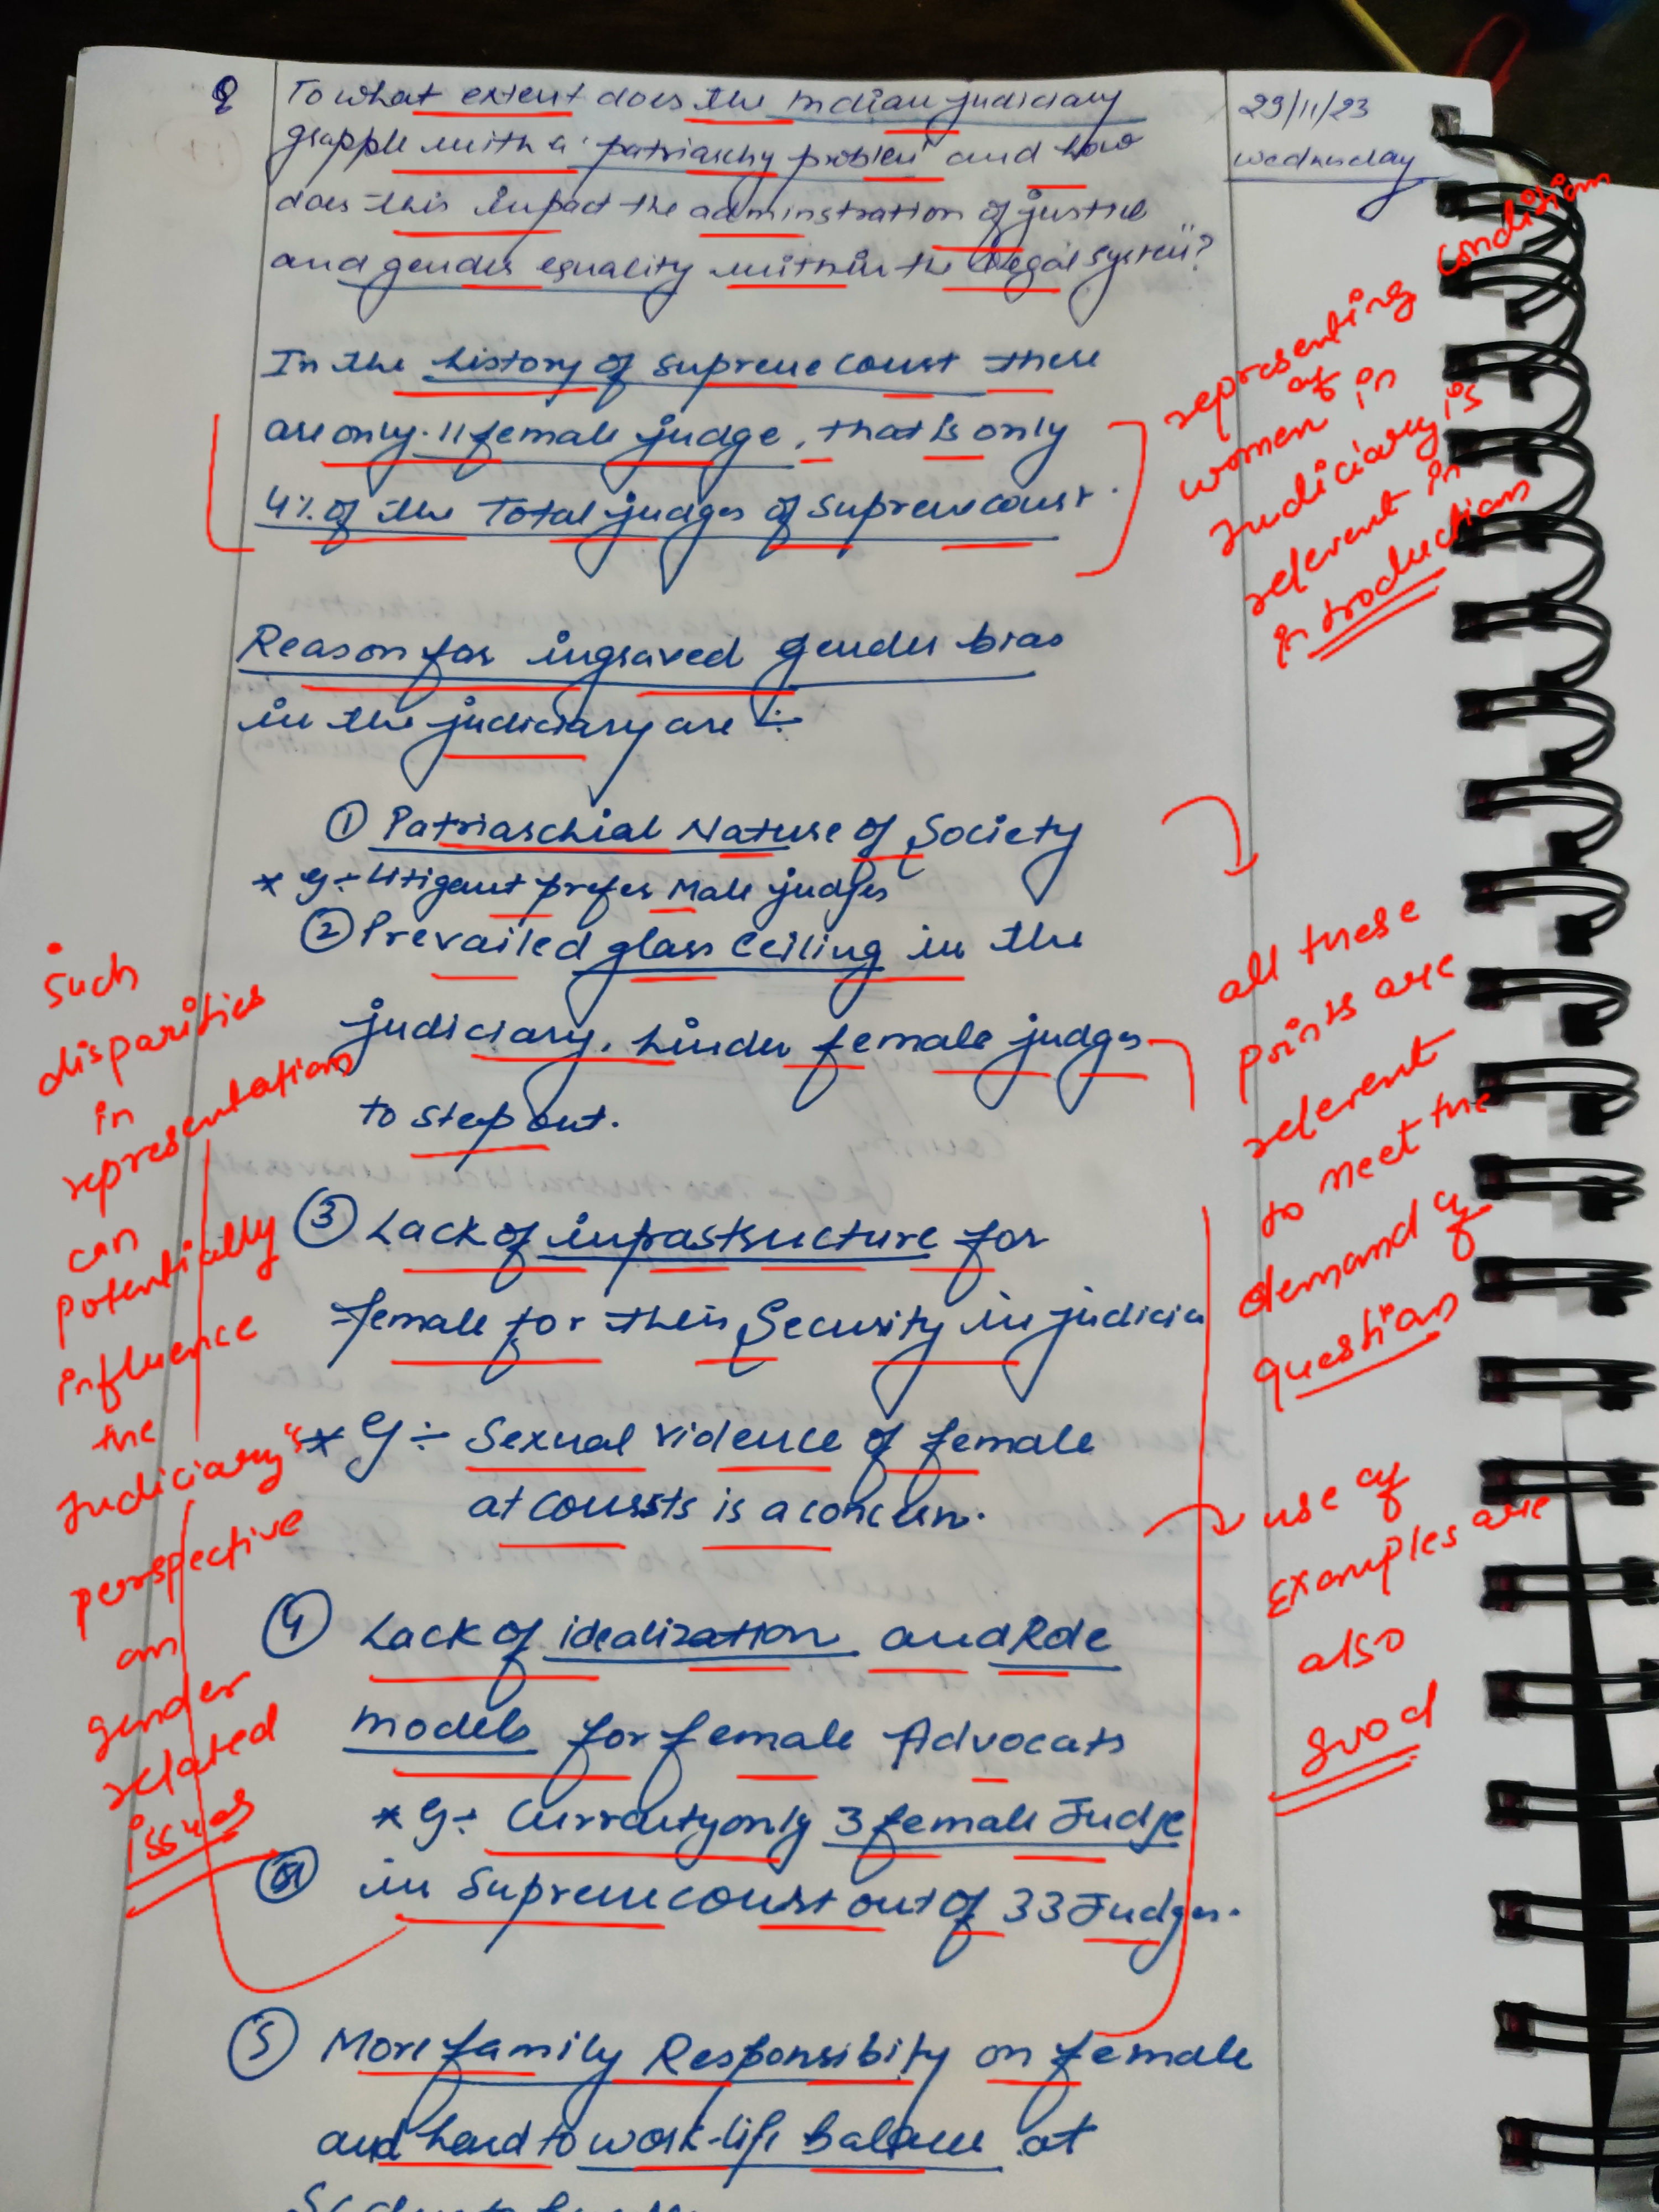 Q To what extent does the Indian judiciary
grapple with a "patriarchy problem" and how
does this impact the adminstration of justice
and gender equality within the legal system"?
29/11/23
Wednesday
In the history of supreme court there
are only 11 female judge, that is only
4% of the Total judges of Supreme court.
representing condition
of
women in
Judiciary is
relevent in
introduction
Reason for ingraved gender bias
in the judiciary are :-
① Patriarchial Nature of Society
* eg :- Litigant prefer Male judges
② Prevailed glass Ceiling in the
judiciary. hinder female judges
to step out.
③ Lack of infrastructure for
female for their Security in judicia
* eg :- Sexual violence of female
at courts is a concern.
④ Lack of idealization and Role
models for female Advocats
* eg :- Currently only 3 female Judge
in Supreme court out of 33 Judges.
⑤ More family Responsibity on female
and hard to work-life balance at
all these
points are
relevent
to meet the
demand of
question
use of
examples are
also
good
such
disparities
in
representation
can
potentially
influence
the
Judiciary's
perspective
on
gender
related
issues